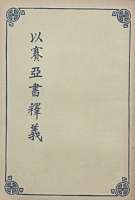 以賽亞書釋義